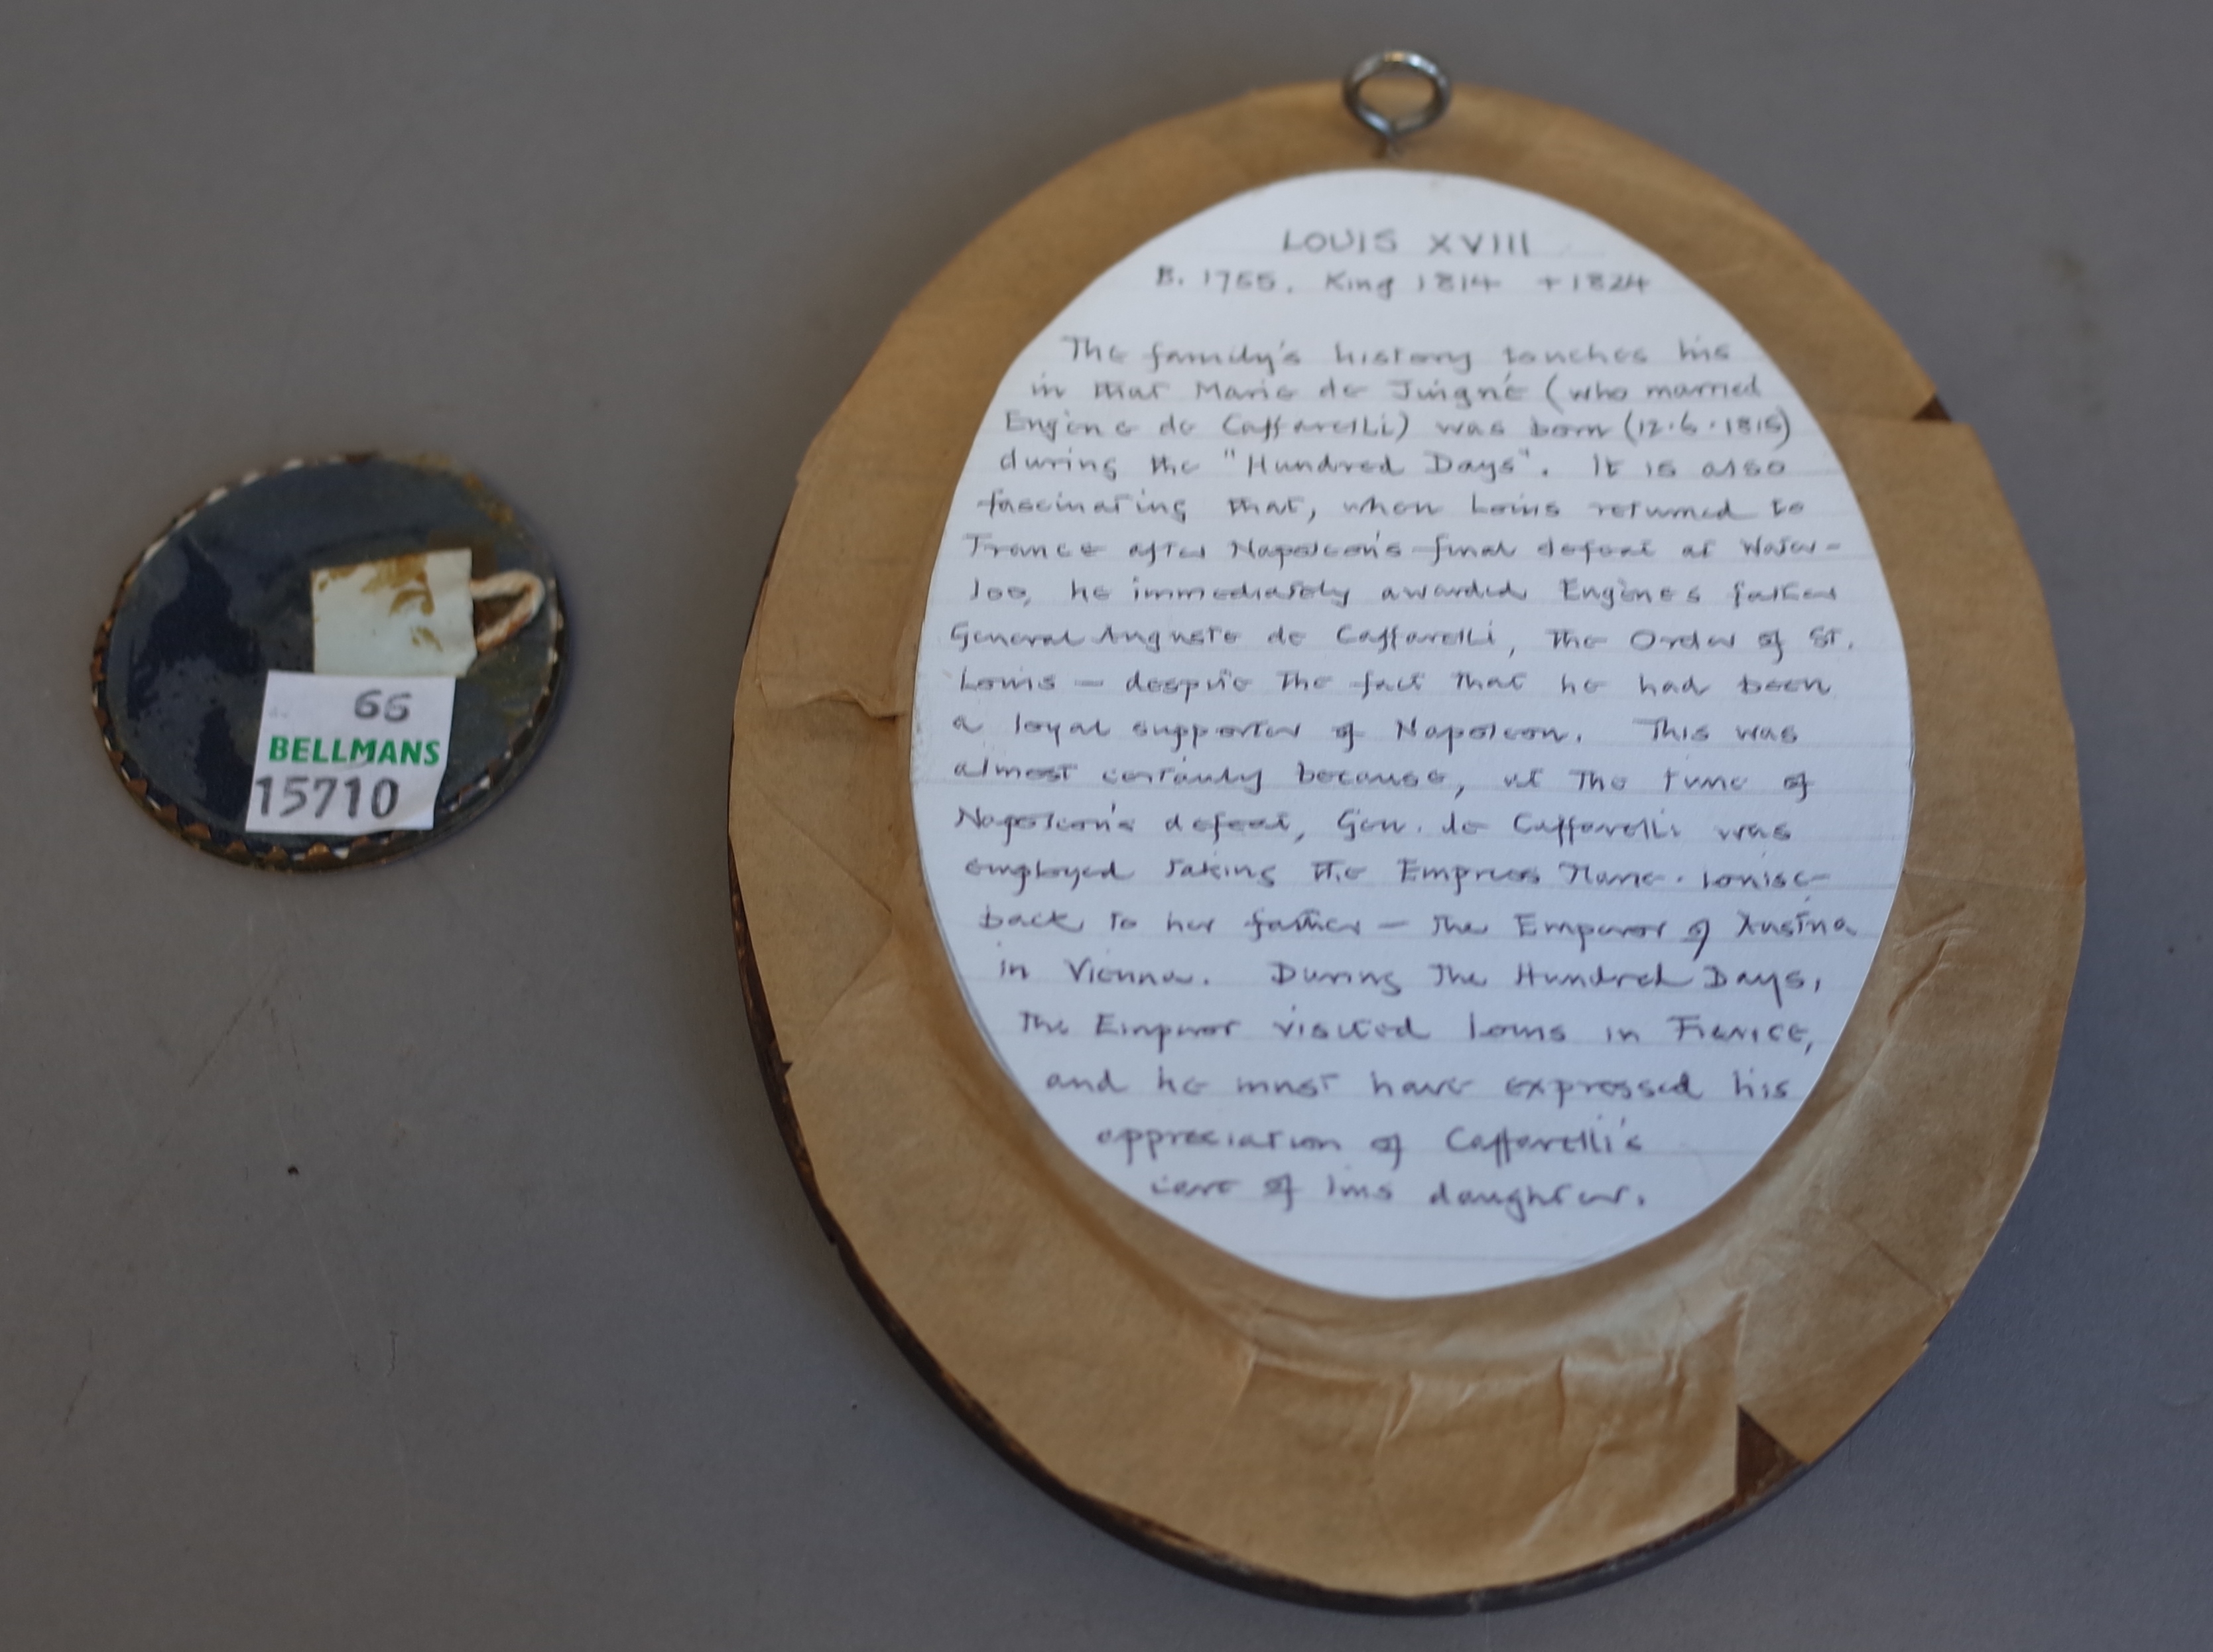 66
BELLMANS
15710
LOUIS XVIII
B. 1755. King 1814 + 1824
The family's history touches his
in that Marie de Juigné (who married
Eugène de Caffarelli) was born (12.6.1815)
during the "Hundred Days". It is also
fascinating that, when Louis returned to
France after Napoleon's final defeat at Water-
loo, he immediately awarded Eugène's father
General Auguste de Caffarelli, The Order of St.
Louis — despite The fact That he had been
a loyal supporter of Napoleon. This was
almost certainly because, at The time of
Napoleon's defeat, Gen. de Caffarelli was
employed taking the Empress Marie-Louise
back to her father — The Emperor of Austria
in Vienna. During The Hundred Days,
The Emperor visited Louis in
and he must have expressed his
appreciation of Caffarelli's
care of his daughter.